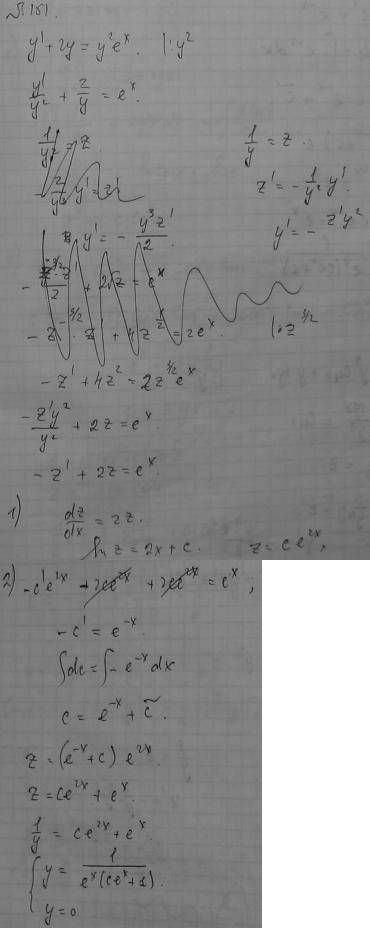 № 151.
y' + 2y = y²eˣ. |:y²
y'/y² + 2/y = eˣ.
1/y² = z. 1/y = z.
-2/y³ y' = z' z' = -1/y² y'.
y' = - y³z'/2. y' = - z'y²
-z' + 4z² = 2z^(3/2) eˣ
-z'y²/y² + 2z = eˣ.
-z' + 2z = eˣ.
1) dz/dx = 2z.
ln z = 2x + c. z = ce²ˣ,
2) -c'e²ˣ - 2ce²ˣ + 2ce²ˣ = eˣ,
-c' = e⁻ˣ.
∫dc = ∫-e⁻ˣdx
c = e⁻ˣ + c̃.
z = (e⁻ˣ + c) e²ˣ.
z = ce²ˣ + eˣ.
1/y = ce²ˣ + eˣ.
{ y = 1/(eˣ(ceˣ+1)).
y = 0